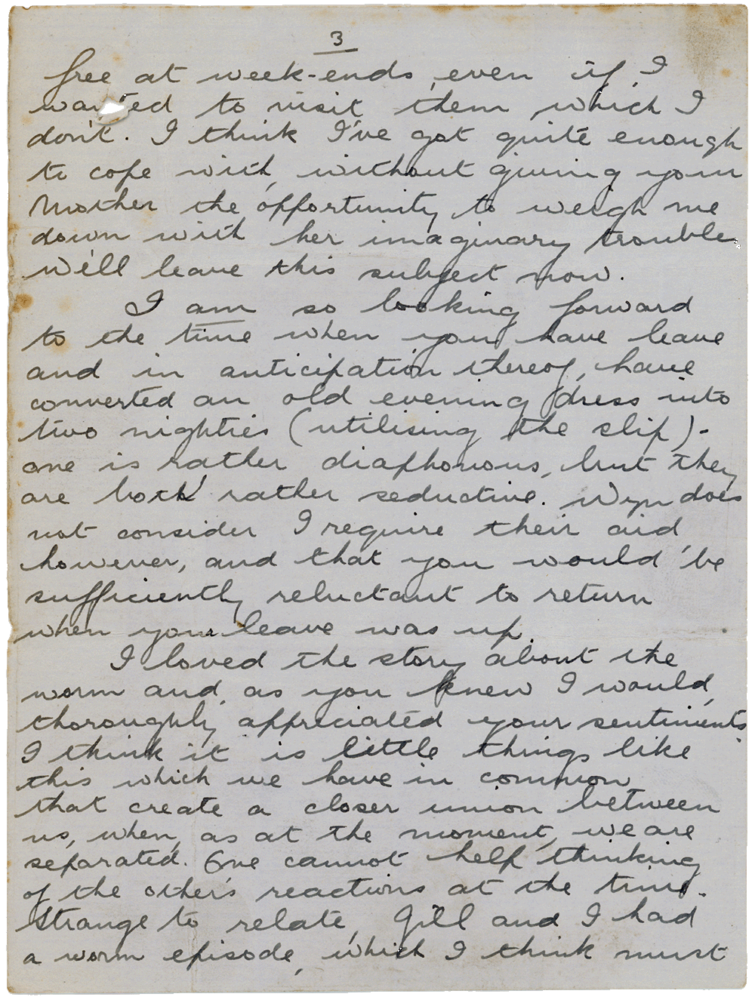 3
free at week-ends, even if I
wanted to visit them which I
don't. I think I've got quite enough
to cope with, without giving your
Mother the opportunity to weigh me
down with her imaginary trouble
we'll leave this subject now.
I am so looking forward
to the time when you have leave
and in anticipation thereof, have
converted an old evening dress into
two nighties (utilising the slip)-
one is rather diaphonous, but they
are both rather seductive. Wyn does
not consider I require their aid
however, and that you would be
sufficiently reluctant to return
when your leave was up.
I loved the story about the
worm and, as you knew I would,
thoroughly appreciated your sentiments
I think it is little things like
this which we have in common
that create a closer union between
us, when, as at the moment, we are
separated. One cannot help thinking
of the other's reactions at the time.
Strange to relate, Gill and I had
a worm episode, which I think must